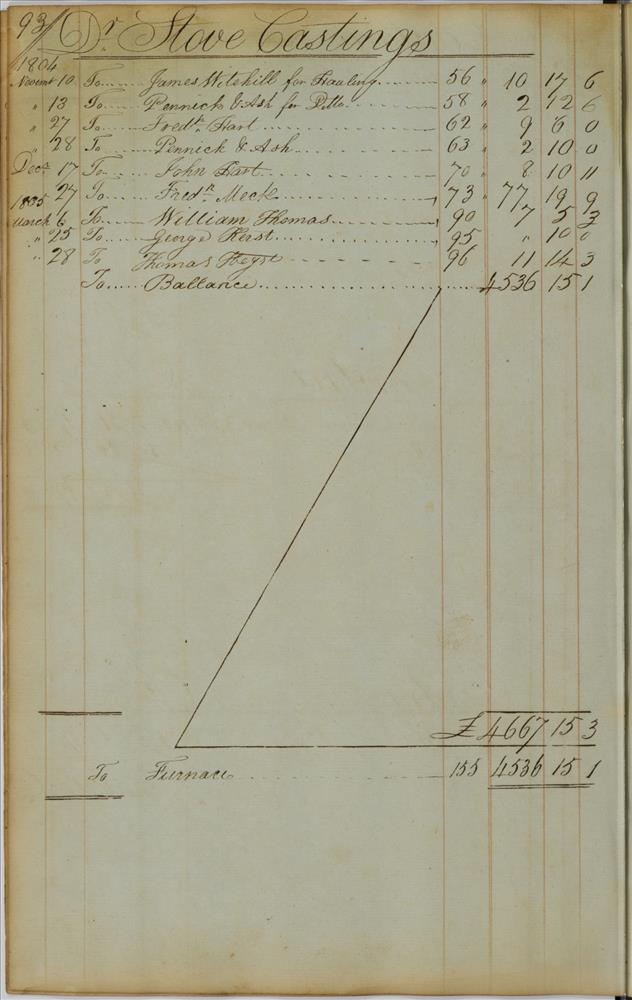 93 Dr Stove Castings
1804
Novemr 10 To James Witehill for Hauling 56 " 10 17 6
" 13 To Pennick & Ash for Ditto 58 " 2 12 6
" 27 To Fredk. Hart 62 " 9 6 0
" 28 To Pennick & Ash 63 " 2 10 0
Decr 17 To John Hart 70 " 8 10 11
" 27 To Fredk Meck 73 " 77 19 9
1805
March 6 To William Thomas 90 7 5 3
" 25 To George 95 " 10 0
" 28 To Thomas 96 11 14 3
To Ballance 4536 15 1
£ 4667 15 3
To Furnace 155 4536 15 1